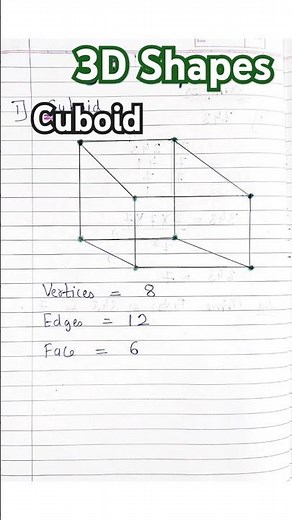 3D Shapes
I] Cuboid
Cuboid
Vertices = 8
Edges = 12
Face = 6